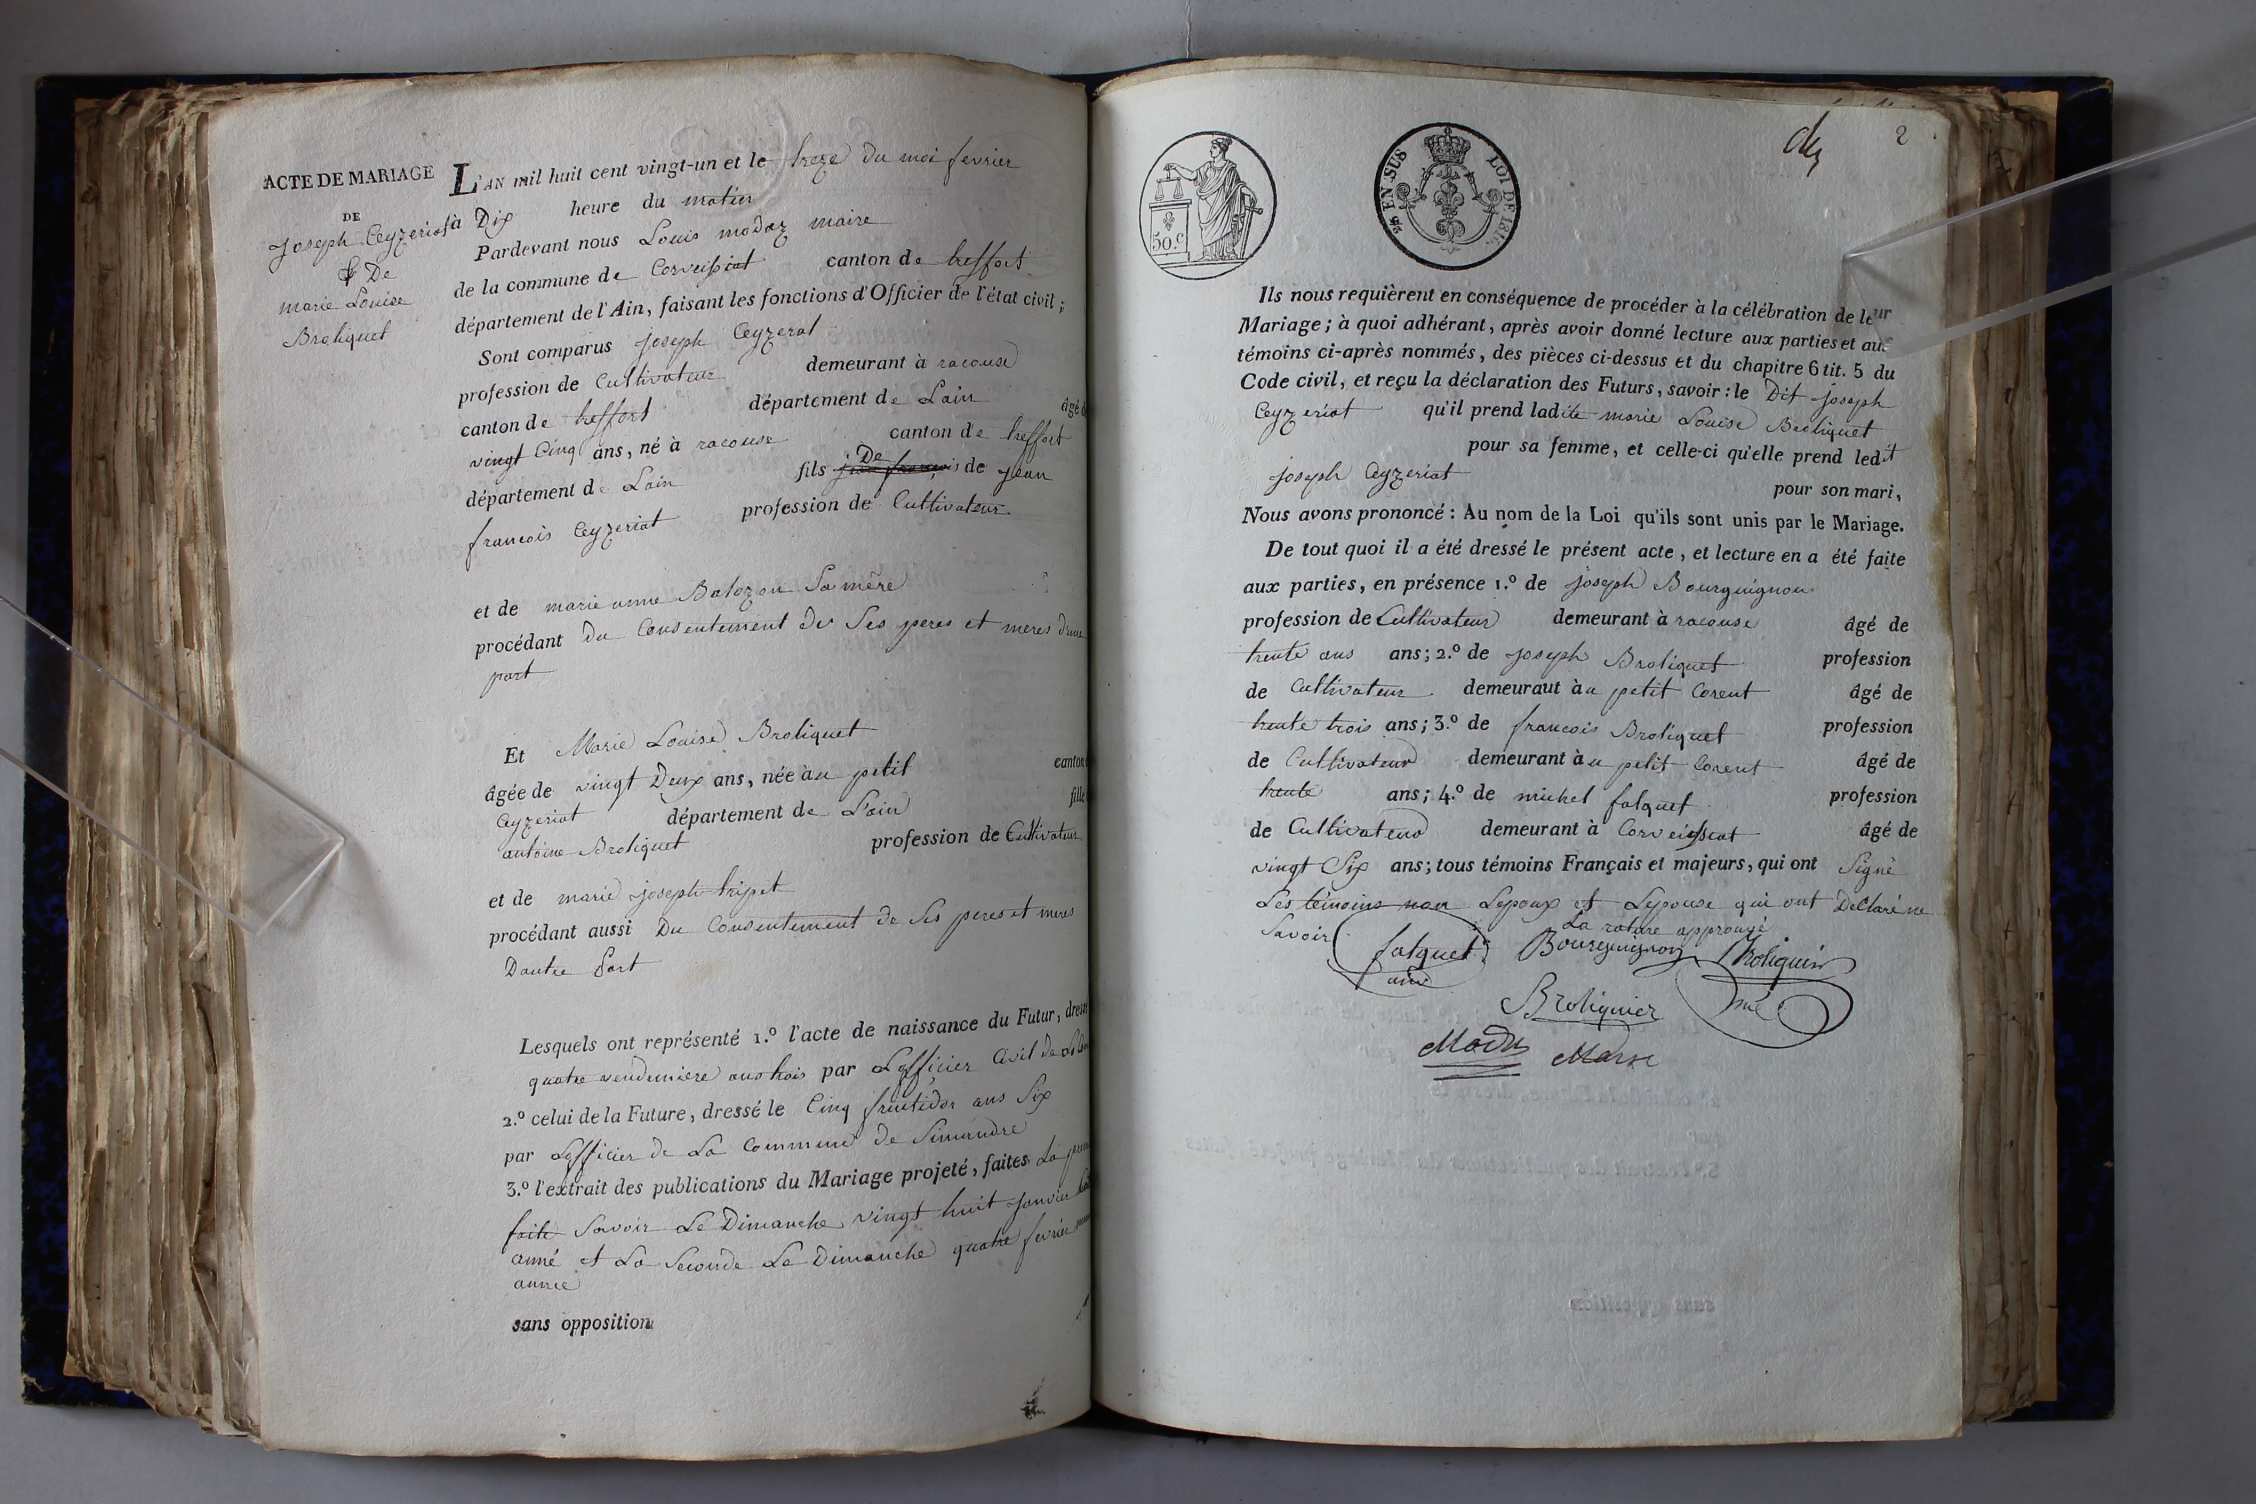 ACTE DE MARIAGE
DE
Joseph Ceyzeriat
& De
marie Louise
Broliquet
L'AN mil huit cent vingt-un et le treze du moi fevrier
à Dix heure du matin
Pardevant nous Louis modaz maire
de la commune de Corveissiat canton de treffort
département de l'Ain, faisant les fonctions d'Officier de l'état civil;
Sont comparus joseph Ceyzerat
profession de Cultivateur demeurant à racouse
canton de treffort département de Lain âgé d
vingt Cinq ans, né à racouse canton de treffort
département de Lain fils De de jean
francois Ceyzeriat profession de Cultivateur
et de marie anne Balozon Sa mère
procédant du Consentement de Ses peres et meres d'une
part
Et Marie Louise Broliquet
âgée de vingt Deux ans, née àu petit canton
Ceyzeriat département de L'ain fille
antoine Broliquet profession de Cultivateur
et de marie joseph tripet
procédant aussi Du Consentement de Ses peres et meres
Dautre Part
Lesquels ont représenté 1.º l'acte de naissance du Futur, dressé
quatre vendemiere ans trois par Lofficier Civil de
2.º celui de la Future, dressé le Cinq fruitidor ans Six
par Lofficier de La Commune de Simandre
3.º l'extrait des publications du Mariage projeté, faites La
faite Savoir Le Dimanche vingt huit janvier
anné et La Seconde Le Dimanche quatre fevrier
année
sans opposition
50.C
EN SUS LOI DE 1816.
2
Ils nous requièrent en conséquence de procéder à la célébration de leur
Mariage; à quoi adhérant, après avoir donné lecture aux parties et aux
témoins ci-après nommés, des pièces ci-dessus et du chapitre 6 tit. 5 du
Code civil, et reçu la déclaration des Futurs, savoir: le Dit joseph
Ceyzeriat qu'il prend ladite marie Louise Broliquet
pour sa femme, et celle-ci qu'elle prend ledit
joseph Ceyzeriat pour son mari,
Nous avons prononcé: Au nom de la Loi qu'ils sont unis par le Mariage.
De tout quoi il a été dressé le présent acte, et lecture en a été faite
aux parties, en présence 1.º de joseph Bourguignon
profession de Cultivateur demeurant à racouse âgé de
trente ans ans; 2.º de joseph Broliquet profession
de Cultivateur demeurant àu petit Corent âgé de
trente trois ans; 3.º de francois Broliquet profession
de Cultivateur demeurant àu petit Corent âgé de
trente ans; 4.º de michel falquet profession
de Cultivateur demeurant à Corveissiat âgé de
vingt Six ans; tous témoins Français et majeurs, qui ont Signé
Les témoins non Lepoux et Lepouse qui ont Declaré ne
Savoir La rature approuvé
falquet Bourguignon Broliquier
Broliquier
Maire